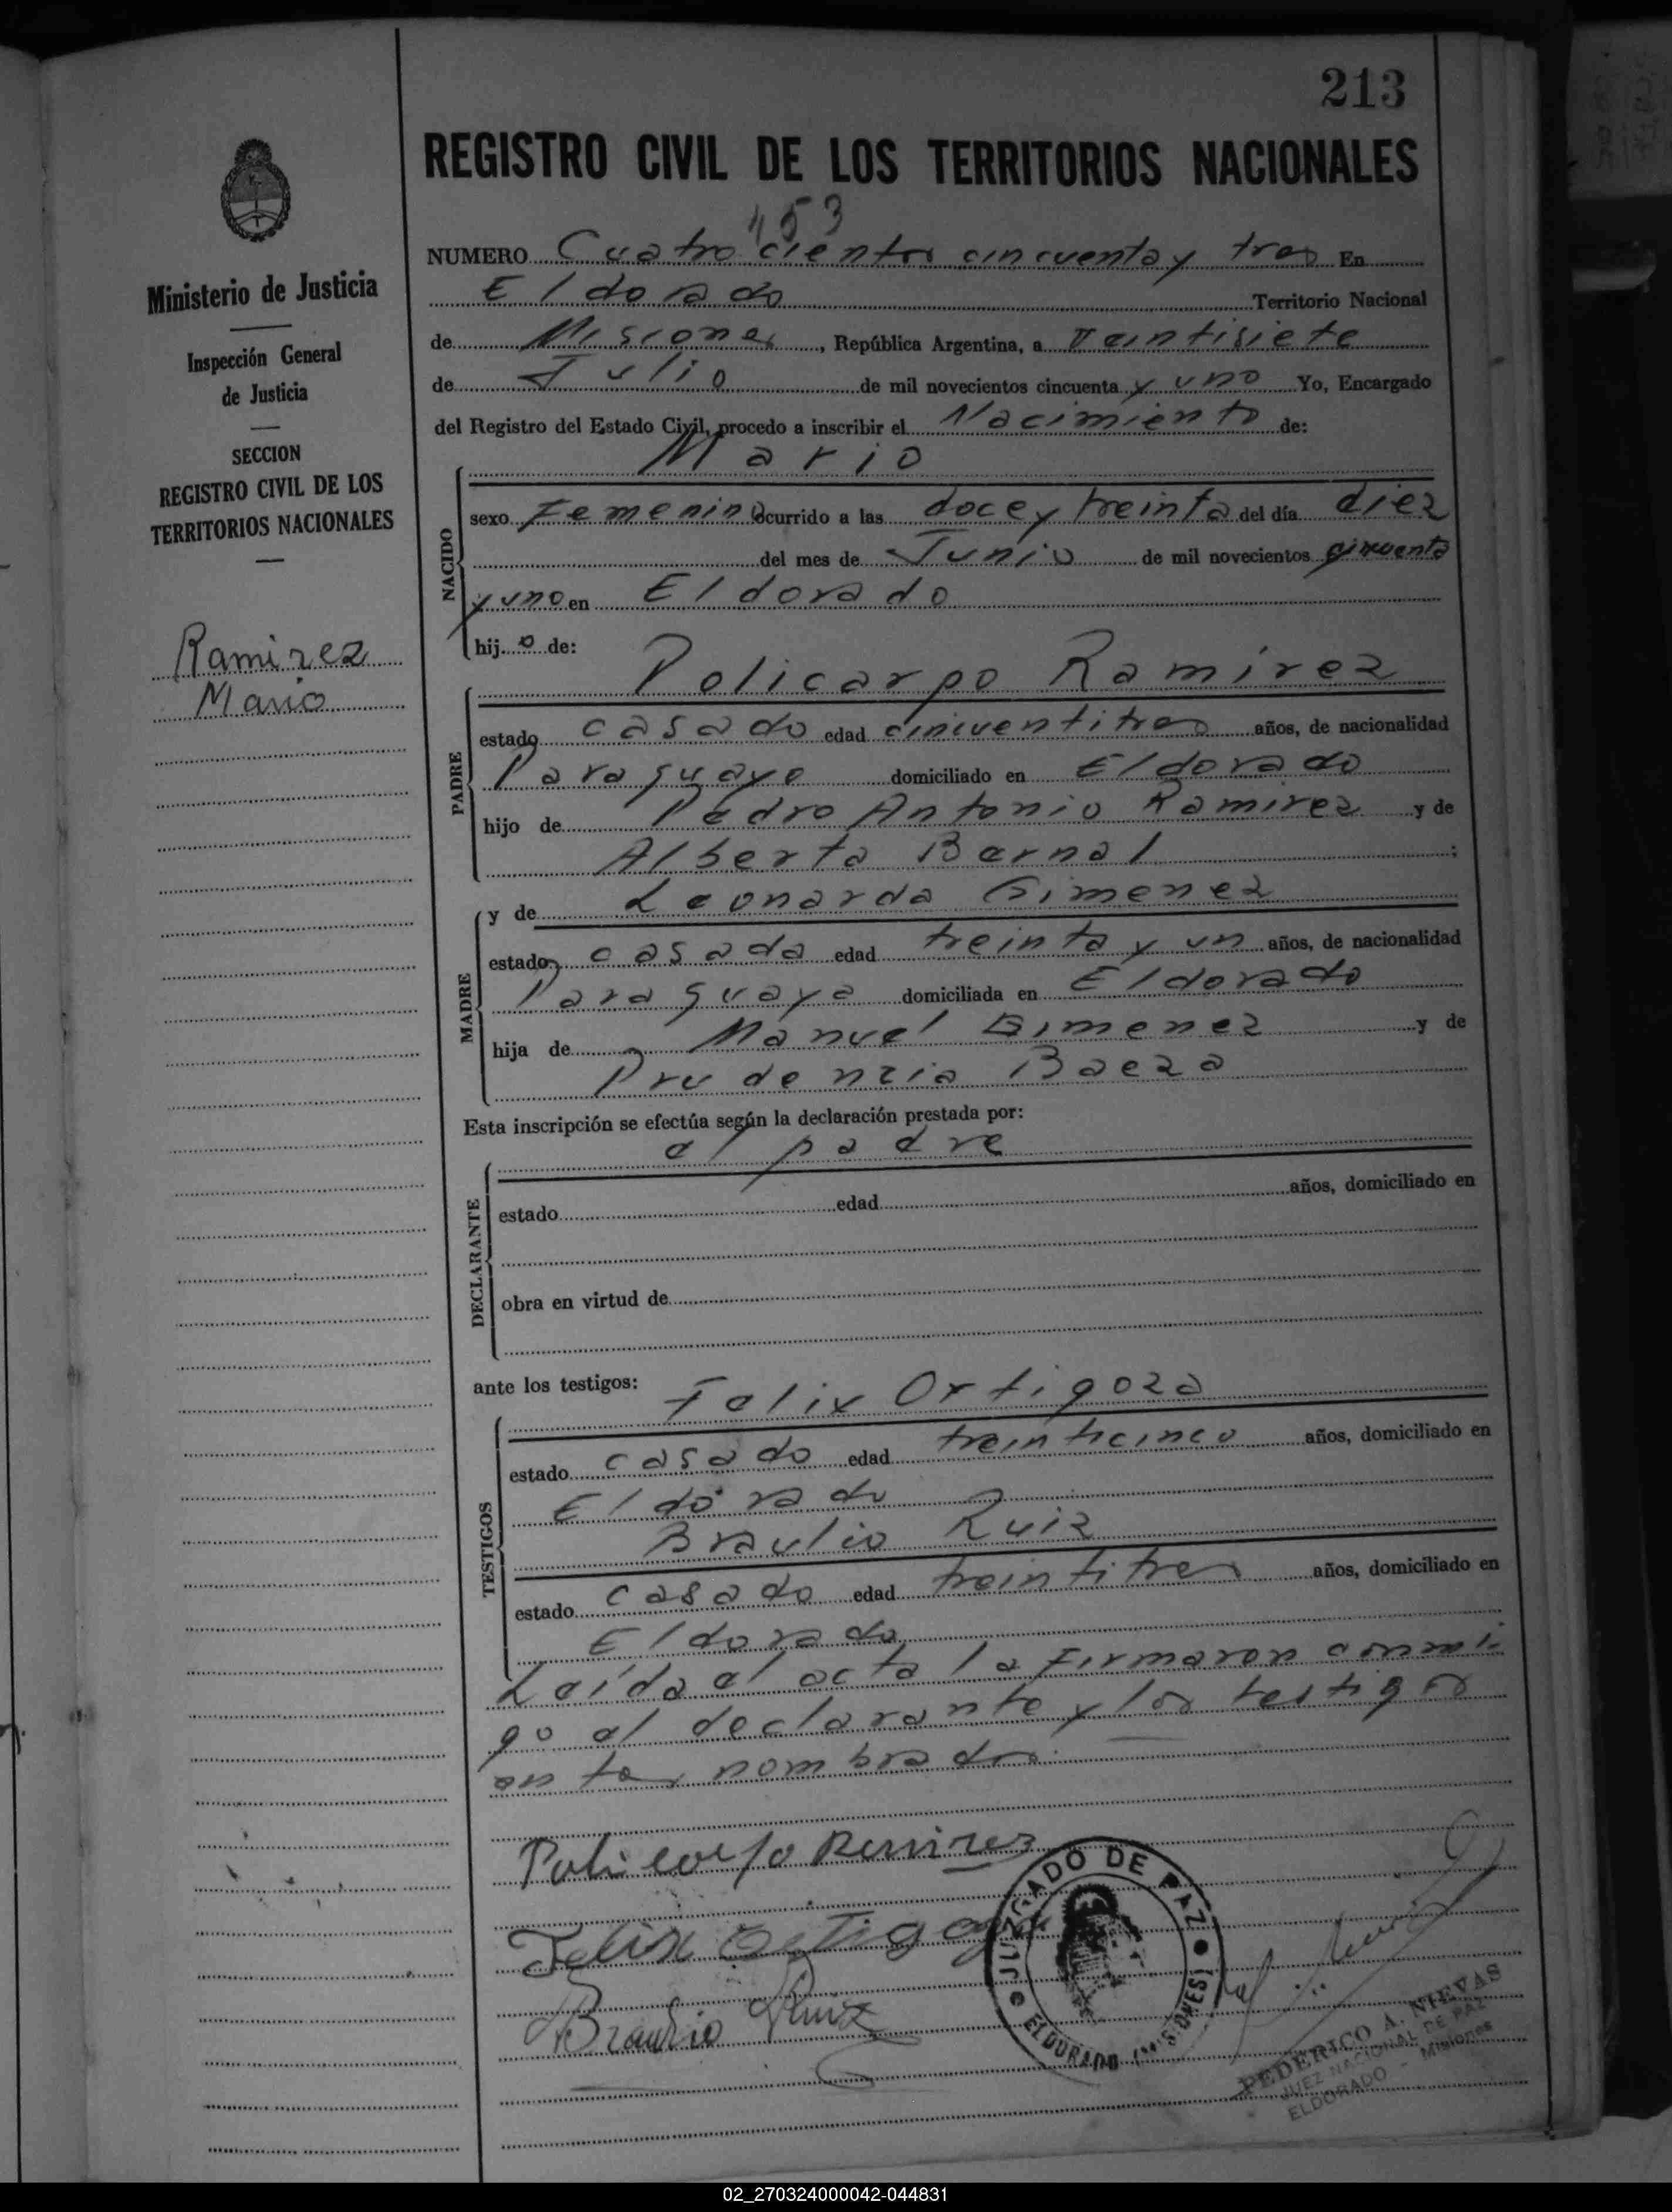 213
REGISTRO CIVIL DE LOS TERRITORIOS NACIONALES
453
NUMERO Cuatrocientos cincuenta y tres En
Eldorado Territorio Nacional
de Misiones, República Argentina, a veintisiete
de Julio de mil novecientos cincuenta y uno Yo, Encargado
del Registro del Estado Civil, procedo a inscribir el Nacimiento de:
Mario
NACIDO
sexo Femenino ocurrido a las doce y treinta del día diez
del mes de Junio de mil novecientos cincuenta
y uno en Eldorado
hijo de:
Policarpo Ramírez
PADRE
estado casado edad cincuentitres años, de nacionalidad
Paraguayo domiciliado en Eldorado
hijo de Pedro Antonio Ramirez y de
Alberta Bernal;
y de Leonarda Gimenez
MADRE
estado casada edad treinta y un años, de nacionalidad
Paraguaya domiciliada en Eldorado
hija de Manuel Gimenez y de
Prudencia Baeza
Esta inscripción se efectúa según la declaración prestada por:
el padre
DECLARANTE
estado edad años, domiciliado en
obra en virtud de
ante los testigos:
Felix Ortigoza
TESTIGOS
estado casado edad treinticinco años, domiciliado en
Eldorado
Braulio Ruiz
estado casado edad treintitres años, domiciliado en
Eldorado
Leída el acta la firmaron conmi-
go el declarante y los testigos
antes nombrados.
Policarpo Ramirez
Felix Ortigoza
Braulio Ruiz
JUZGADO DE PAZ
ELDORADO (MISIONES)
FEDERICO A. NIEVAS
JUEZ NACIONAL DE PAZ
ELDORADO - Misiones
Ministerio de Justicia
Inspección General
de Justicia
SECCION
REGISTRO CIVIL DE LOS
TERRITORIOS NACIONALES
Ramirez
Mario
02_270324000042-044831